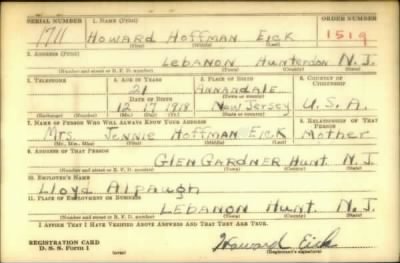 SERIAL NUMBER 1. NAME (Print) ORDER NUMBER
1711 Howard Hoffman Eick 1519
(First) (Middle) (Last)
2. ADDRESS (Print)
Lebanon Hunterdon N.J.
(Number and street or R. F. D. number) (Town) (County) (State)
3. TELEPHONE 4. AGE IN YEARS 5. PLACE OF BIRTH 6. COUNTRY OF CITIZENSHIP
21 ANNANDALE
(Town or county)
DATE OF BIRTH
12 17 1918 New Jersey U.S.A.
(Exchange) (Number) (Mo.) (Day) (Yr.) (State or country)
7. NAME OF PERSON WHO WILL ALWAYS KNOW YOUR ADDRESS 8. RELATIONSHIP OF THAT PERSON
Mrs. Jennie Hoffman Eick Mother
(Mr., Mrs., Miss) (First) (Middle) (Last)
9. ADDRESS OF THAT PERSON
GLEN GARDNER Hunt. N.J.
(Number and street or R. F. D. number) (Town) (County) (State)
10. EMPLOYER'S NAME
Lloyd Alpaugh
11. PLACE OF EMPLOYMENT OR BUSINESS
LEBANON Hunt. N.J.
(Number and street or R. F. D. number) (Town) (County) (State)
I AFFIRM THAT I HAVE VERIFIED ABOVE ANSWERS AND THAT THEY ARE TRUE.
REGISTRATION CARD
D. S. S. Form 1 (over) Howard Eick
(Registrant's signature)